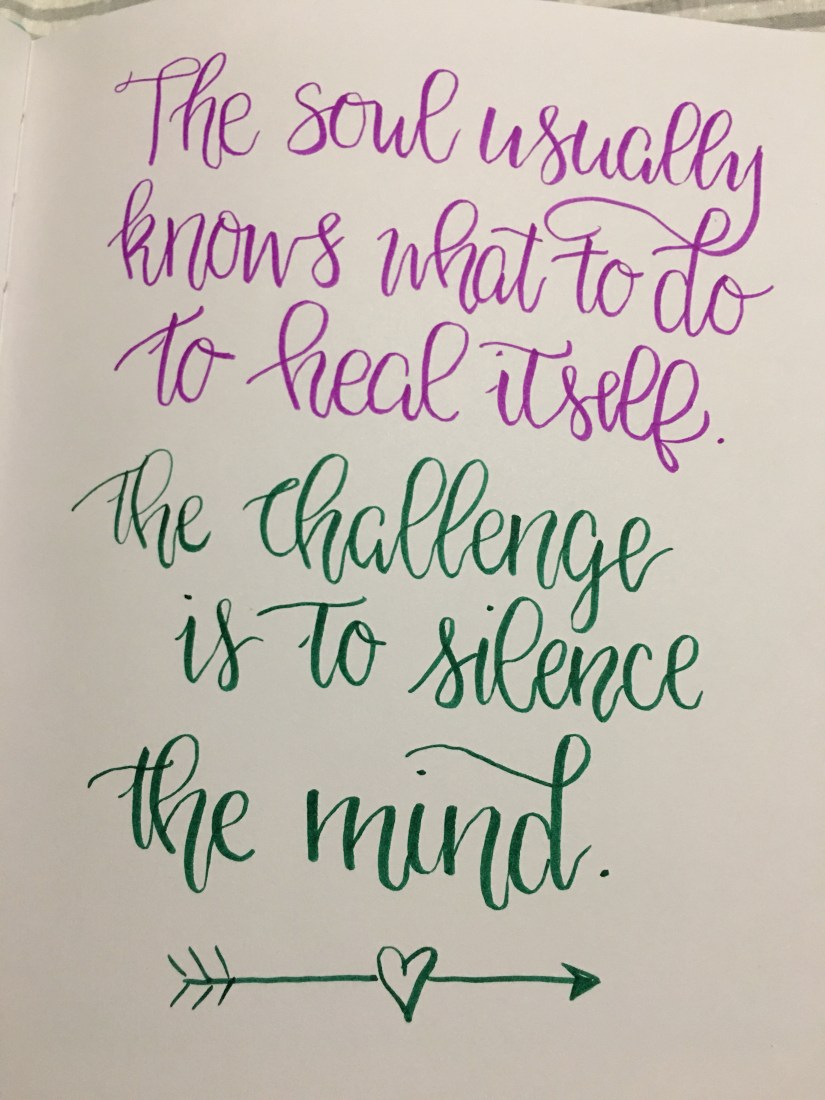 The soul usually
knows what to do
to heal itself.
the challenge
is to silence
the mind.